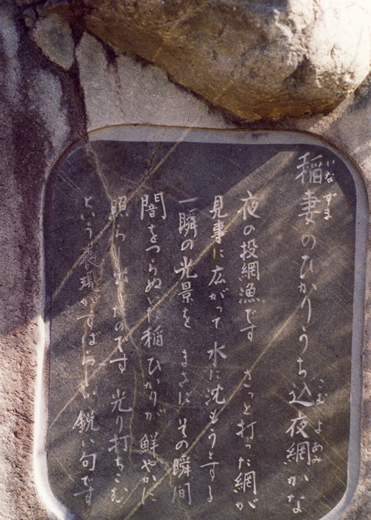 稲妻のひかりうち込夜網かな
いなずま
こむよあみ
夜の投網漁です さっと打った網が
見事に広がって 水に沈もうとする
一瞬の光景を まさにその瞬間
闇をつらぬいた稲びかりが 鮮やかに
照らしたものです 光り打ちこむ
という表現がすばらしい 鋭い句です